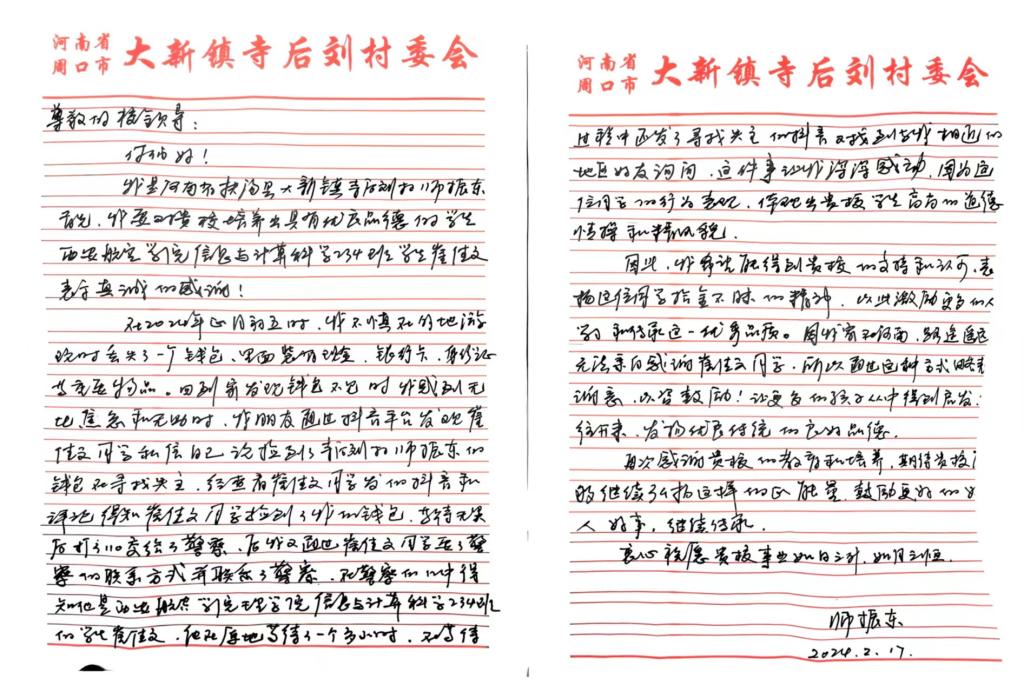 河南省
周口市
大新镇寺后刘村委会
尊敬的校领导：
你们好！
我是河南扶沟县大新镇寺后刘村师振东
首先，我要对贵校培养出具有优良品德的学生
西安航空学院信息与计算科学234班学生崔佳文
表示真诚的感谢！
在2024年正月初五时，我不慎在外地游
玩时丢失了一个钱包，里面装有现金、银行卡、身份证
等重要物品。回到家发现钱包不见时我感到无
比焦急和无助时，我朋友通过抖音平台发现崔
佳文同学私信自己说捡到了寺后刘村师振东的
钱包在寻找失主，经查看崔佳文同学发的抖音和
评论得知崔佳文同学捡到了我的钱包，等待无果
后打了110交给了警察，后我又通过崔佳文同学要了警
察的联系方式并联系了警察，在警察的口中得
知他是西安航空学院理学院信息与计算科学234班
的学生崔佳文，他在原地等待了一个多小时，在等待
河南省
周口市
大新镇寺后刘村委会
过程中还发了寻找失主的抖音又找到与我相近的
地区好友询问，这件事让我深深感动，因为这
位同学的行为表现，体现出贵校学生高尚的道德
情操和精神风貌。
因此，我希望能得到贵校的支持和认可，表
扬这位同学拾金不昧的精神，以此激励更多的人
学习和传承这一优秀品质。因我家在河南，路途遥远
无法亲自感谢崔佳文同学，所以通过这种方式略表
谢意，以资鼓励！让更多的孩子从中得到启发：
继往开来，发扬优良传统的良好品德。
再次感谢贵校的教育和培养，期待贵校
能继续弘扬这样的正能量，鼓励更好的好
人好事，继续传承。
衷心祝愿贵校事业如日之升，如月之恒。
师振东
2024.2.17.